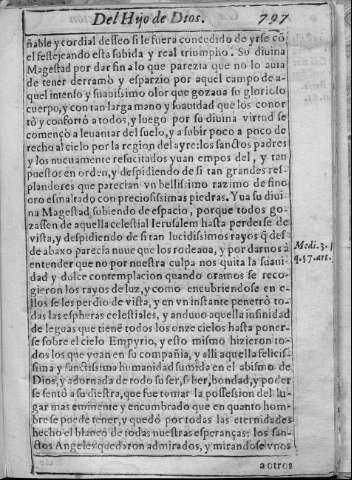 Del Hijo de Dios. 797
ñable y cordial desseo si le fuera concedido de yrse cõ
el festejeando esta subida y real triumpho. Su diuina
Magestad por dar fin a lo que parezia que no lo auia
de tener derramò y esparzio por aquel campo de a-
quel intenso y suauissimo olor que gozaua su glorioso
cuerpo, y con tan larga mano y suauidad que los confor
tò y confortò a todos, y luego por su diuina virtud se
començò a leuantar del suelo, y a subir poco a poco de
recho al cielo por la region del ayre: los sanctos padres
y los nueuamente resucitados yuan empos del, y tan
puestos en orden, y despidiendo de si tan grandes res-
plandores que parecian vn bellissimo razimo de fino
oro esmaltado con preciosissimas piedras. Yua su diui
na Magestad subiendo de espacio, porque todos go-
zassen de aquella celestial Ierusalem hasta perderse de
vista, y despidiendo de si tan lucidissimos rayos q̃ desde
abaxo parecia nuue que los rodeaua, y por darnos à
entender que no por nuestra culpa nos quita la suaui-
dad y dulce contemplacion quando oramos se reco-
gieron los rayos de luz, y como encubriendose en e-
llos se les perdio de vista, y en vn instante penetrò to-
das las espheras celestiales, y anduuo aquella infinidad
de leguas que tienẽ todos los onze cielos hasta poner-
se sobre el cielo Empyrio, y esto mismo hizieron to-
dos los que yuan en su compañia, y alli aquella felicis-
sima y sanctissima humanidad sumida en el abismo de
Dios, y adornada de todo su ser, saber, bondad, y poder
se sentò a su diestra, que fue tomar la possession del lu-
gar mas eminente y encumbrado que en quanto hom-
bre se puede tener, y quedò por todas las eternidades
hecho el blanco de todas nuestras esperanças: los san-
ctos Angeles quedaron admirados, y mirandose vnos
a otros
Medi. 3. p.
q. 57. art.